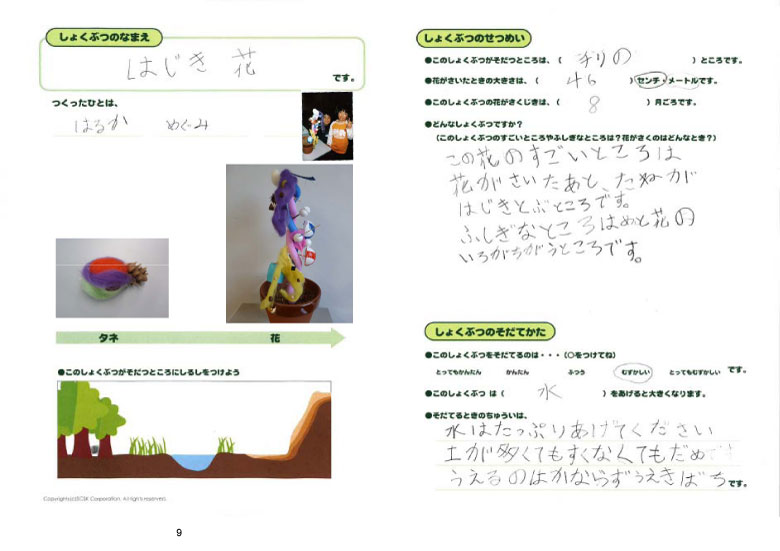 しょくぶつのなまえ
はじき 花
です。
つくったひとは、
はるか めぐみ
タネ
花
●このしょくぶつがそだつところにしるしをつけよう
Copyright(c)
Corporation. All rights reserved.
9
しょくぶつのせつめい
●このしょくぶつがそだつところは、( )ところです。
●花がさいたときの大きさは、( 46 )センチ・メートルです。
●このしょくぶつの花がさくじきは、( 8 )月ごろです。
●どんなしょくぶつですか?
(このしょくぶつのすごいところやふしぎなところは?花がさくのはどんなとき?)
この花のすごいところは
花がさいたあと、たねが
はじきとぶところです。
ふしぎなところはめと花の
いろがちがうところです。
しょくぶつのそだてかた
●このしょくぶつをそだてるのは・・・(○をつけてね)
とってもかんたん かんたん ふつう むずかしい とってもむずかしい です。
●このしょくぶつ は ( 水 )をあげると大きくなります。
●そだてるときのちゅういは、
水はたっぷりあげてください
土が多くてもすくなくてもだめです
うえるのはかならずうえきばち です。